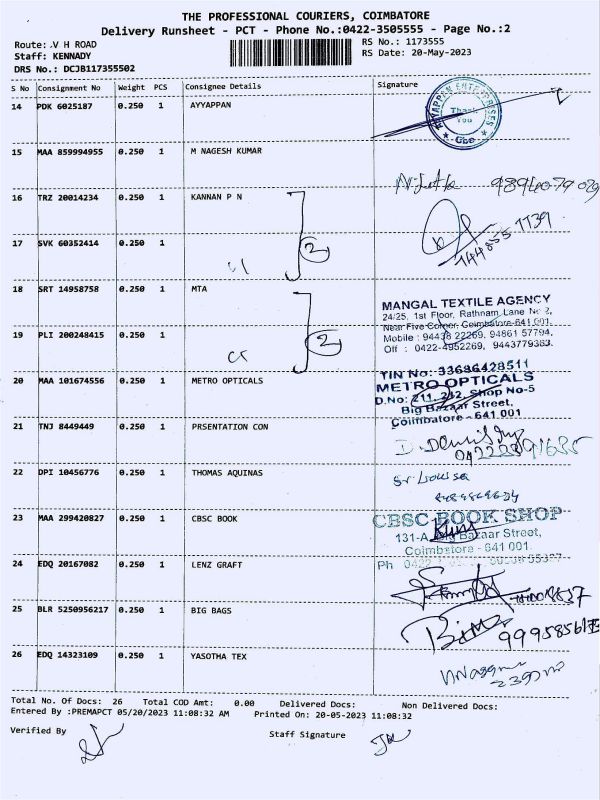 THE PROFESSIONAL COURIERS, COIMBATORE
Delivery Runsheet - PCT - Phone No.:0422-3505555 - Page No.:2
Route: .V H ROAD RS No.: 1173555
Staff: KENNADY RS Date: 20-May-2023
DRS No.: DCJB117355502
S No Consignment No Weight PCS Consignee Details Signature
14 PDK 6025187 0.250 1 AYYAPPAN
AYYAPPAN ENTERPRISES
Thank You
Cbe
15 MAA 859994955 0.250 1 M NAGESH KUMAR
16 TRZ 20014234 0.250 1 KANNAN P N
2
17 SVK 60352414 0.250 1
18 SRT 14958758 0.250 1 MTA
MANGAL TEXTILE AGENCY
24/25, 1st Floor, Rathnam Lane No 2,
Near Five Corner, Coimbatore-641 001.
Mobile : 94438 22269, 94861 57794,
Off : 0422-4952269, 9443779383.
2
19 PLI 200248415 0.250 1
20 MAA 101674556 0.250 1 METRO OPTICALS
TIN No: 33686428511
METRO OPTICALS
D.No: 211, 212, Shop No-5
Big Bazaar Street,
Coimbatore - 641 001
21 TNJ 8449449 0.250 1 PRSENTATION CON
22 DPI 10456776 0.250 1 THOMAS AQUINAS
Sr Louisa
23 MAA 299420827 0.250 1 CBSC BOOK
CBSC BOOK SHOP
131-A, Big Bazaar Street,
Coimbatore - 641 001.
Ph
24 EDQ 20167082 0.250 1 LENZ GRAFT
25 BLR 5250956217 0.250 1 BIG BAGS
26 EDQ 14323109 0.250 1 YASOTHA TEX
Total No. Of Docs: 26 Total COD Amt: 0.00 Delivered Docs: Non Delivered Docs:
Entered By :PREMAPCT 05/20/2023 11:08:32 AM Printed On: 20-05-2023 11:08:32
Verified By Staff Signature